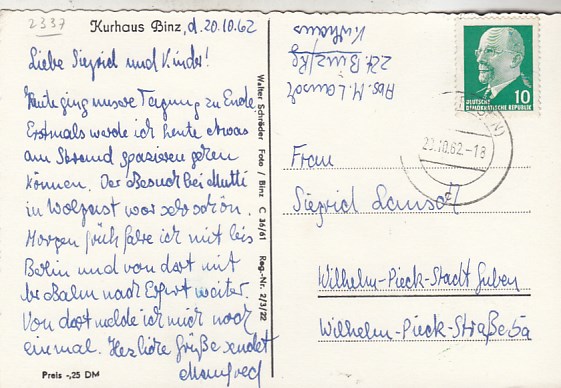 2337
Kurhaus Binz, d. 20.10.62
Liebe Siegrid und Kinder!
Heute ging unsere Tagung zu Ende.
Erstmals werde ich heute etwas
am Strand spazieren gehen
können. Der Besuch bei Mutti
in Wolgast war sehr schön.
Morgen früh fahre ich mit bis
Berlin und von dort mit
der Bahn nach Erfurt weiter.
Von dort melde ich mich noch
einmal. Herzliche Grüße sendet
Manfred
Preis -,25 DM
Walter Schröder Foto / Binz C 36/61 Reg.-Nr. 2/3/22
Abs. M. Lausch
z.Zt. Binz/Rg
Kurhaus
10
DEUTSCHE
DEMOKRATISCHE REPUBLIK
20.10.62-18
Frau
Siegrid Lausch
Wilhelm-Pieck-Stadt Guben
Wilhelm-Pieck-Straße 5a